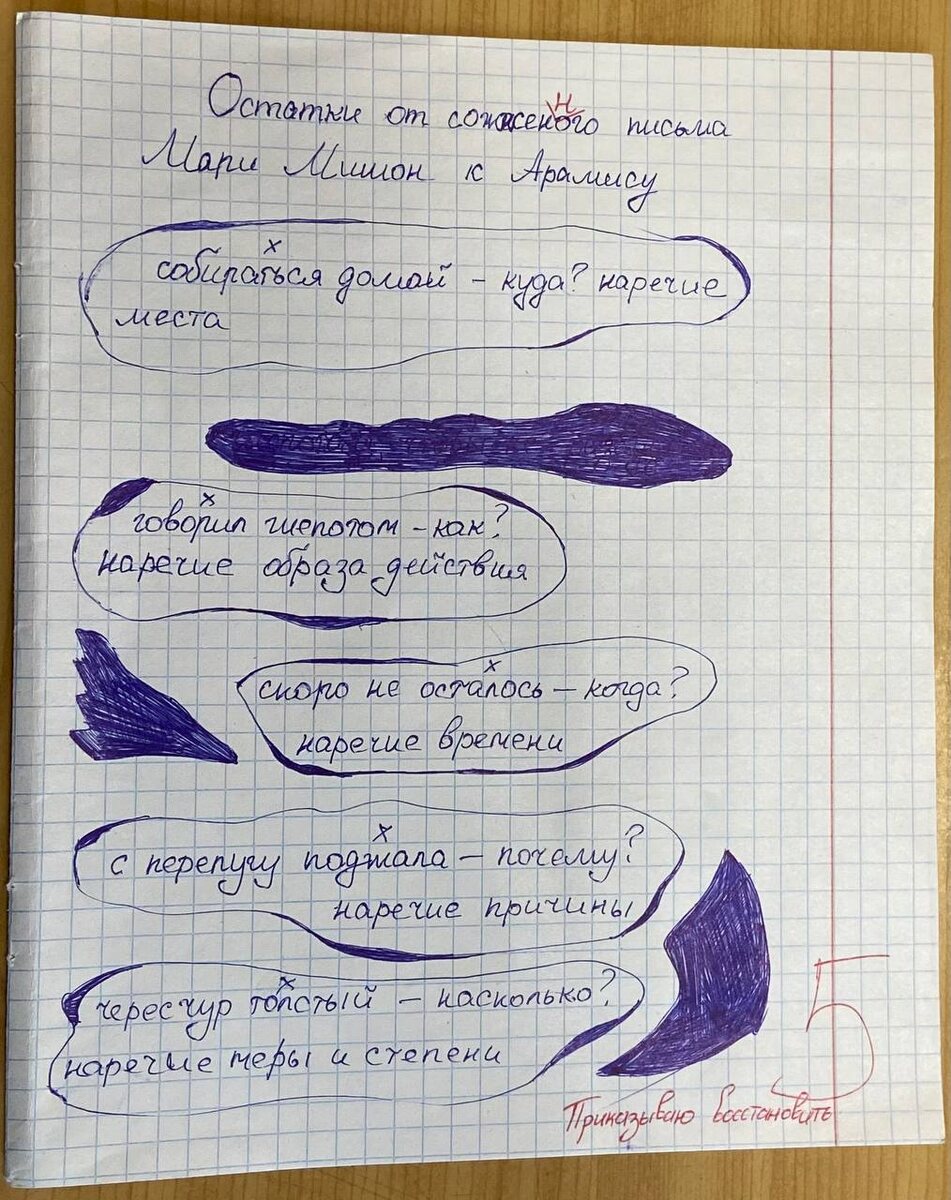 Остатки от сожженого письма
н
Мари Мишон к Арамису
х
собираться домой – куда? наречие
места
х
говорил шепотом – как?
наречие образа действия
х
скоро не осталось – когда?
наречие времени
х
с перепугу поджала – почему?
наречие причины
х
чересчур толстый – насколько?
наречие меры и степени
5
Приказываю восстановить